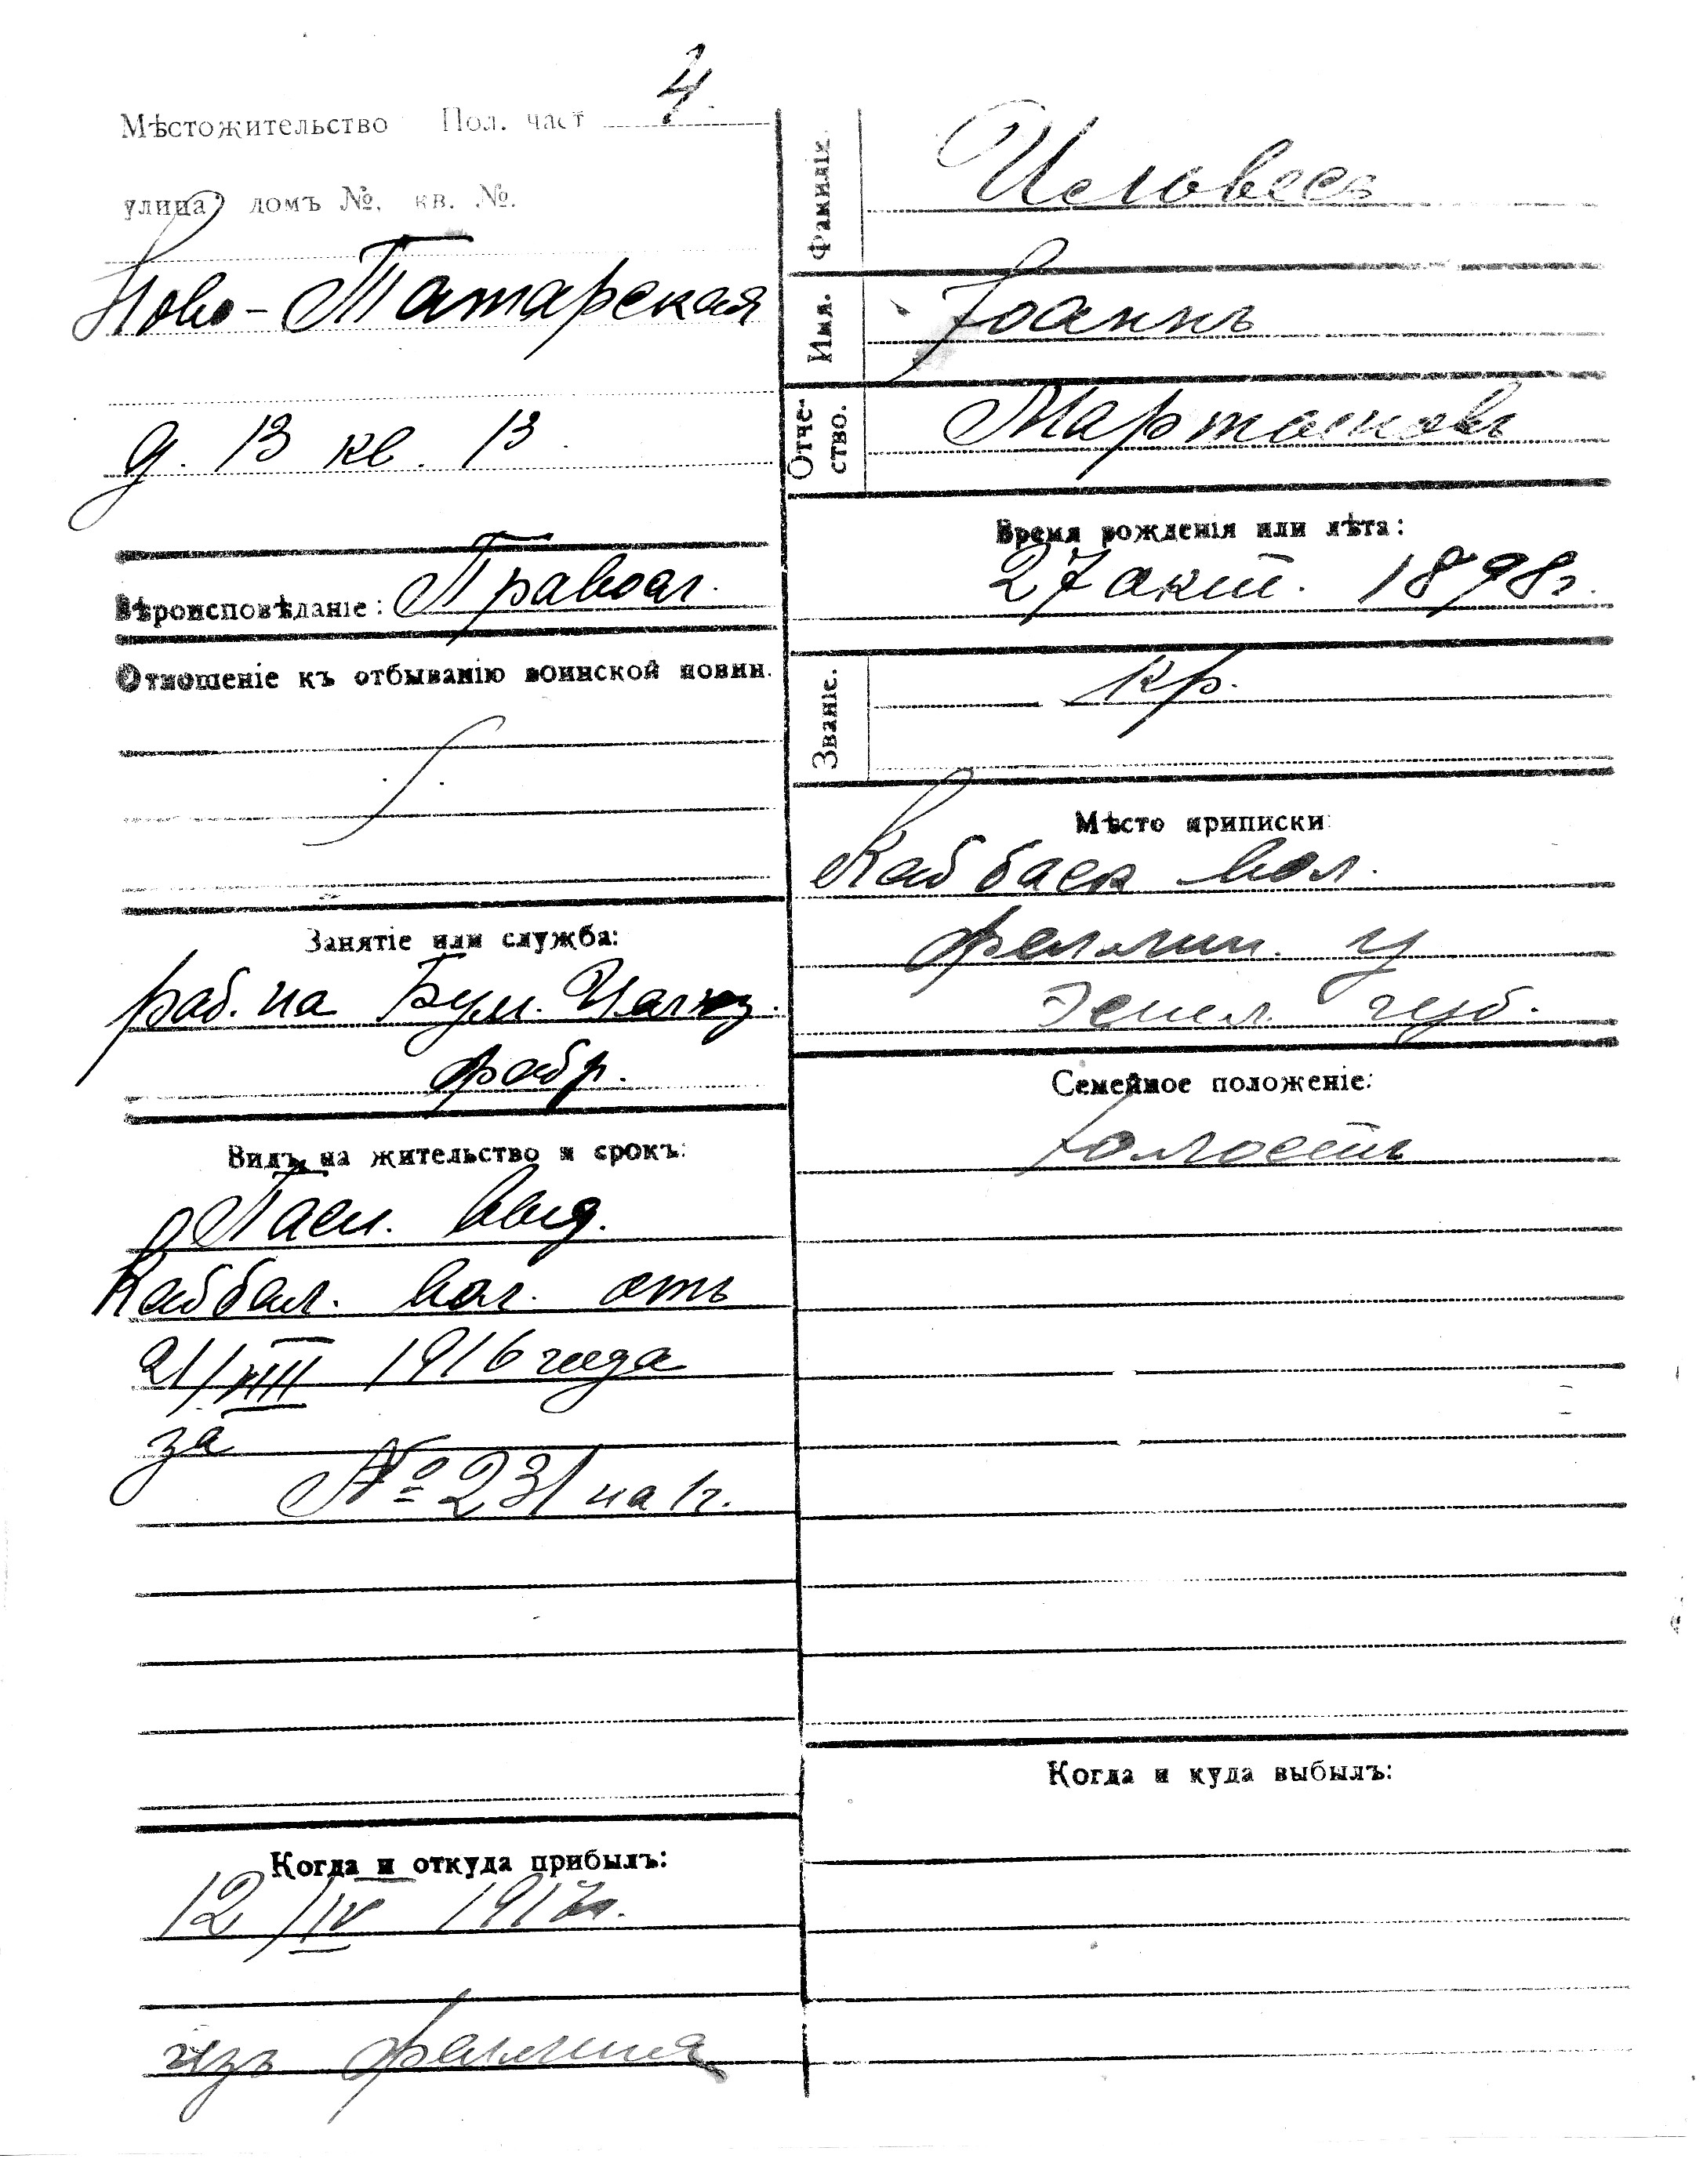 Мѣстожительство Пол. част 4.
улица, домъ №, кв. №.
Ново-Татарская
д. 13 кв. 13.
Вѣроисповѣданіе: Правосл.
Отношеніе къ отбыванію воинской повин.
Занятіе или служба:
раб. на Бум. Целюз.
фабр.
Видъ на жительство и срокъ:
Пасп. выд.
вол. отъ
21/VIII 1916 года
за
№ 231 на 1 г.
Когда и откуда прибылъ:
12/IV 1917 г.
изъ Феллина
Фамилія.
Имя. Іоаннъ
Отче-
ство.
Время рожденія или лѣта:
27 окт. 1898 г.
Званіе. кр.
Мѣсто приписки:
вол.
Феллин. у
губ.
Семейное положеніе:
холостъ
Когда и куда выбылъ: